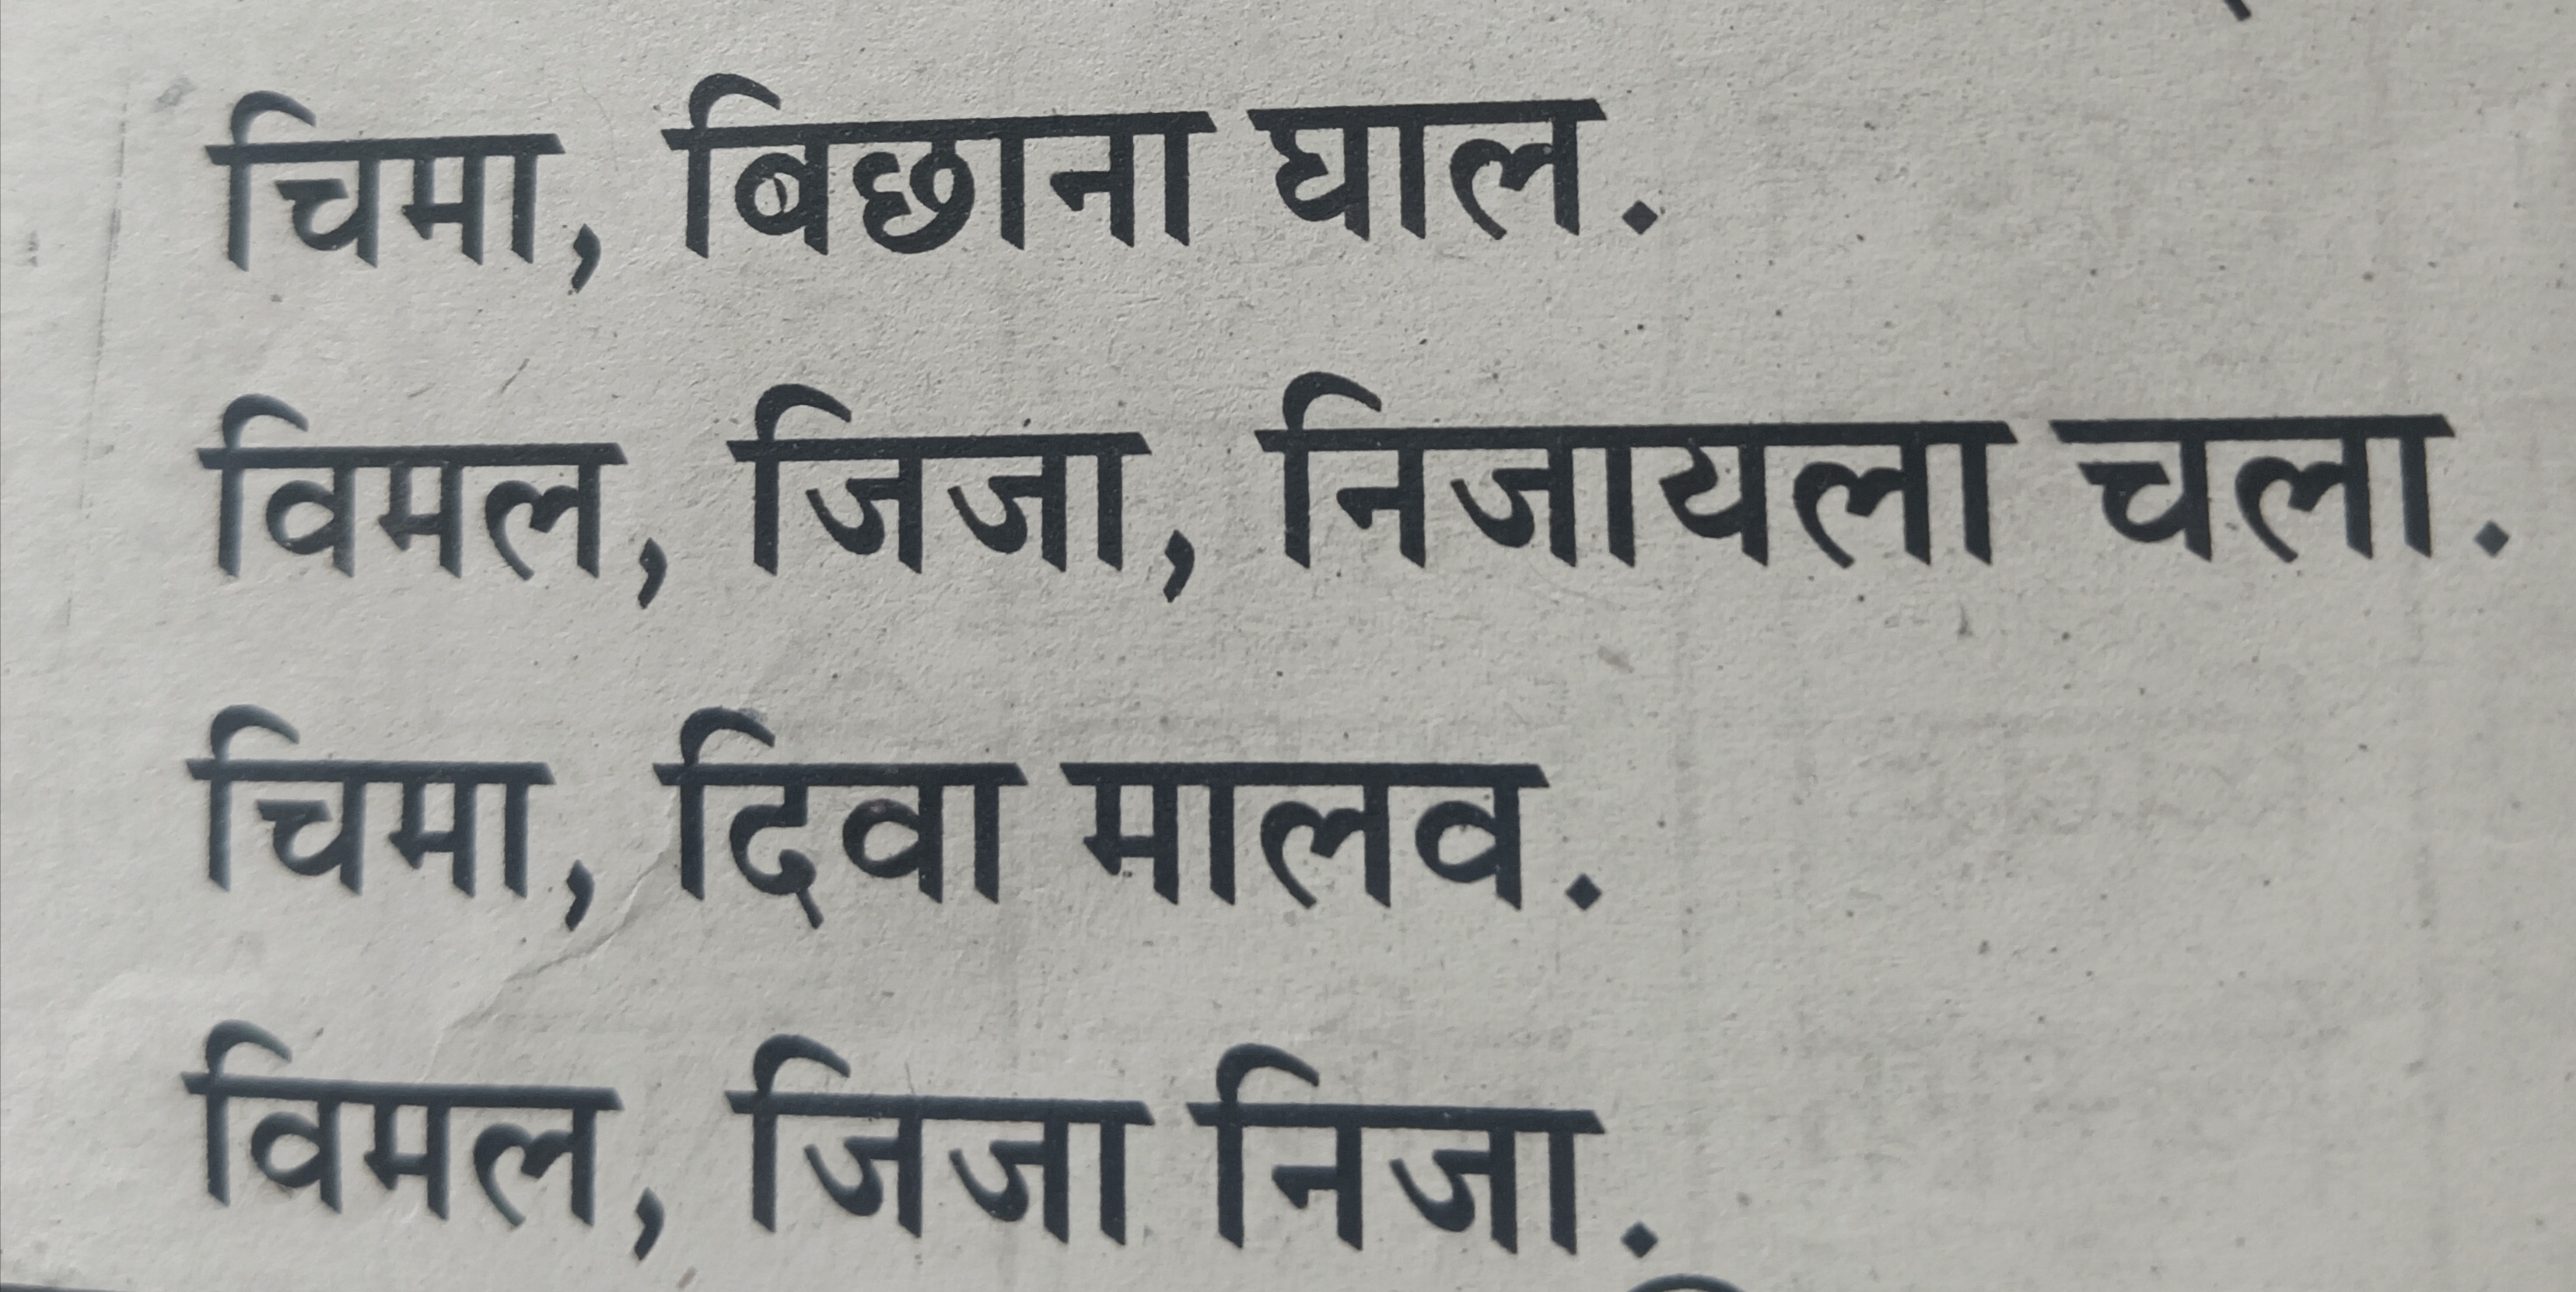 चिमा, बिछाना घाल.
विमल, जिजा, निजायला चला.
चिमा, दिवा मालव.
विमल, जिजा निजा.